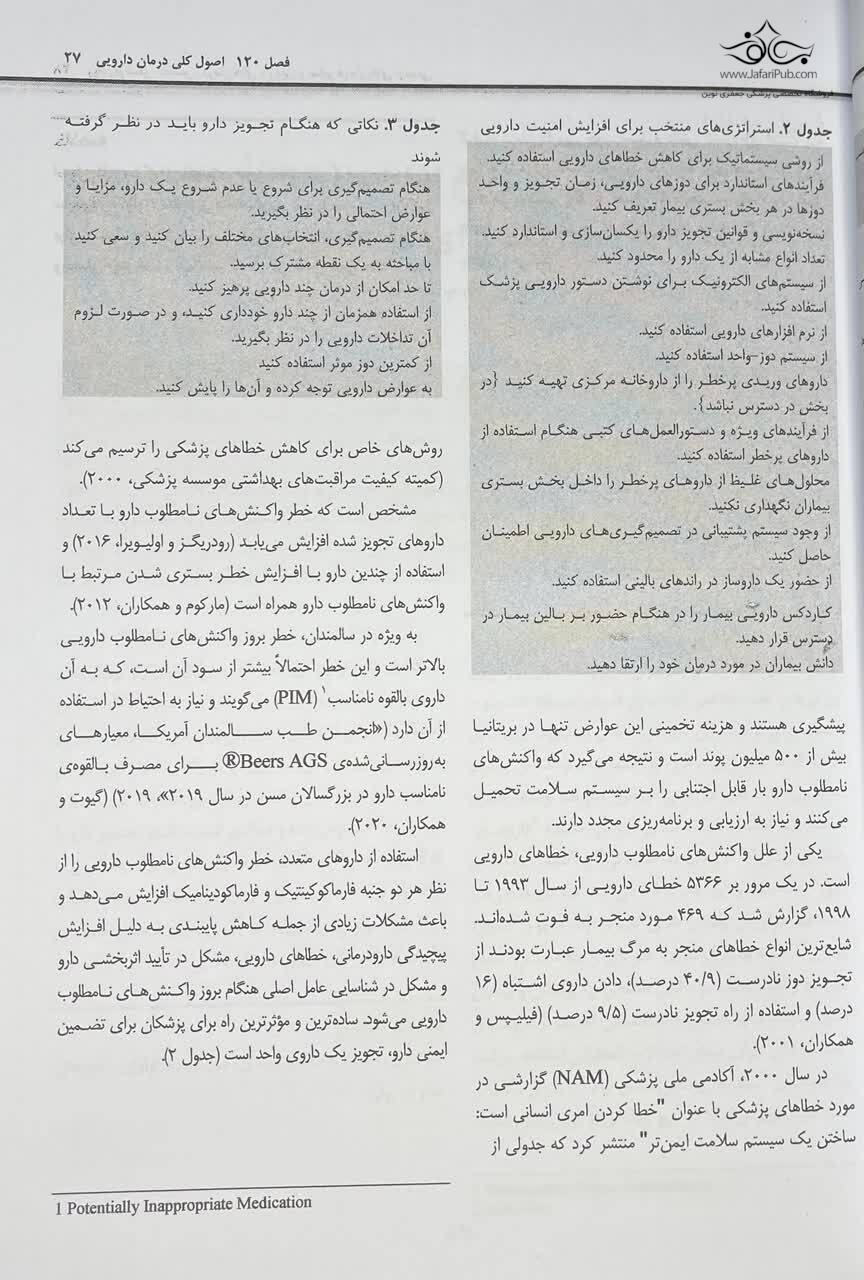 بقاف
www.JafariPub.com
فروشگاه تخصصی پزشکی جعفری نوین
فصل ۱۲۰ اصول کلی درمان دارویی ۲۷
جدول ۲. استراتژی‌های منتخب برای افزایش امنیت دارویی
از روشی سیستماتیک برای کاهش خطاهای دارویی استفاده کنید.
فرآیندهای استاندارد برای دوزهای دارویی، زمان تجویز و واحد
دوزها در هر بخش بستری بیمار تعریف کنید.
نسخه‌نویسی و قوانین تجویز دارو را یکسان‌سازی و استاندارد کنید.
تعداد انواع مشابه از یک دارو را محدود کنید.
از سیستم‌های الکترونیک برای نوشتن دستور دارویی پزشک
استفاده کنید.
از نرم افزارهای دارویی استفاده کنید.
از سیستم دوز-واحد استفاده کنید.
داروهای وریدی پرخطر را از داروخانه مرکزی تهیه کنید {در
بخش در دسترس نباشد}.
از فرآیندهای ویژه و دستورالعمل‌های کتبی هنگام استفاده از
داروهای پرخطر استفاده کنید.
محلول‌های غلیظ از داروهای پرخطر را داخل بخش بستری
بیماران نگهداری نکنید.
از وجود سیستم پشتیبانی در تصمیم‌گیری‌های دارویی اطمینان
حاصل کنید.
از حضور یک داروساز در راندهای بالینی استفاده کنید.
کاردکس دارویی بیمار را در هنگام حضور بر بالین بیمار در
دسترس قرار دهید.
دانش بیماران در مورد درمان خود را ارتقا دهید.
پیشگیری هستند و هزینه تخمینی این عوارض تنها در بریتانیا
بیش از ۵۰۰ میلیون پوند است و نتیجه می‌گیرد که واکنش‌های
نامطلوب دارو بار قابل اجتنابی را بر سیستم سلامت تحمیل
می‌کنند و نیاز به ارزیابی و برنامه‌ریزی مجدد دارند.
یکی از علل واکنش‌های نامطلوب دارویی، خطاهای دارویی
است. در یک مرور بر ۵۳۶۶ خطای دارویی از سال ۱۹۹۳ تا
۱۹۹۸، گزارش شد که ۴۶۹ مورد منجر به فوت شده‌اند.
شایع‌ترین انواع خطاهای منجر به مرگ بیمار عبارت بودند از
تجویز دوز نادرست (۴۰/۹ درصد)، دادن داروی اشتباه (۱۶
درصد) و استفاده از راه تجویز نادرست (۹/۵ درصد) (فیلیپس و
همکاران، ۲۰۰۱).
در سال ۲۰۰۰، آکادمی ملی پزشکی (NAM) گزارشی در
مورد خطاهای پزشکی با عنوان "خطا کردن امری انسانی است:
ساختن یک سیستم سلامت ایمن‌تر" منتشر کرد که جدولی از
جدول ۳. نکاتی که هنگام تجویز دارو باید در نظر گرفته
شوند
هنگام تصمیم‌گیری برای شروع یا عدم شروع یک دارو، مزایا و
عوارض احتمالی را در نظر بگیرید.
هنگام تصمیم‌گیری، انتخاب‌های مختلف را بیان کنید و سعی کنید
با مباحثه به یک نقطه مشترک برسید.
تا حد امکان از درمان چند دارویی پرهیز کنید.
از استفاده همزمان از چند دارو خودداری کنید، و در صورت لزوم
آن تداخلات دارویی را در نظر بگیرید.
از کمترین دوز موثر استفاده کنید
به عوارض دارویی توجه کرده و آن‌ها را پایش کنید.
روش‌های خاص برای کاهش خطاهای پزشکی را ترسیم می‌کند
(کمیته کیفیت مراقبت‌های بهداشتی موسسه پزشکی، ۲۰۰۰).
مشخص است که خطر واکنش‌های نامطلوب دارو با تعداد
داروهای تجویز شده افزایش می‌یابد (رودریگز و اولیویرا، ۲۰۱۶) و
استفاده از چندین دارو با افزایش خطر بستری شدن مرتبط با
واکنش‌های نامطلوب دارو همراه است (مارکوم و همکاران، ۲۰۱۲).
به ویژه در سالمندان، خطر بروز واکنش‌های نامطلوب دارویی
بالاتر است و این خطر احتمالاً بیشتر از سود آن است، که به آن
داروی بالقوه نامناسب۱ (PIM) می‌گویند و نیاز به احتیاط در استفاده
از آن دارد («انجمن طب سالمندان آمریکا، معیارهای
به‌روزرسانی‌شده‌ی Beers AGS® برای مصرف بالقوه‌ی
نامناسب دارو در بزرگسالان مسن در سال ۲۰۱۹»، ۲۰۱۹) (گیوت و
همکاران، ۲۰۲۰).
استفاده از داروهای متعدد، خطر واکنش‌های نامطلوب دارویی را از
نظر هر دو جنبه فارماکوکینتیک و فارماکودینامیک افزایش می‌دهد و
باعث مشکلات زیادی از جمله کاهش پایبندی به دلیل افزایش
پیچیدگی دارودرمانی، خطاهای دارویی، مشکل در تأیید اثربخشی دارو
و مشکل در شناسایی عامل اصلی هنگام بروز واکنش‌های نامطلوب
دارویی می‌شود. ساده‌ترین و مؤثرترین راه برای پزشکان برای تضمین
ایمنی دارو، تجویز یک داروی واحد است (جدول ۲).
1 Potentially Inappropriate Medication